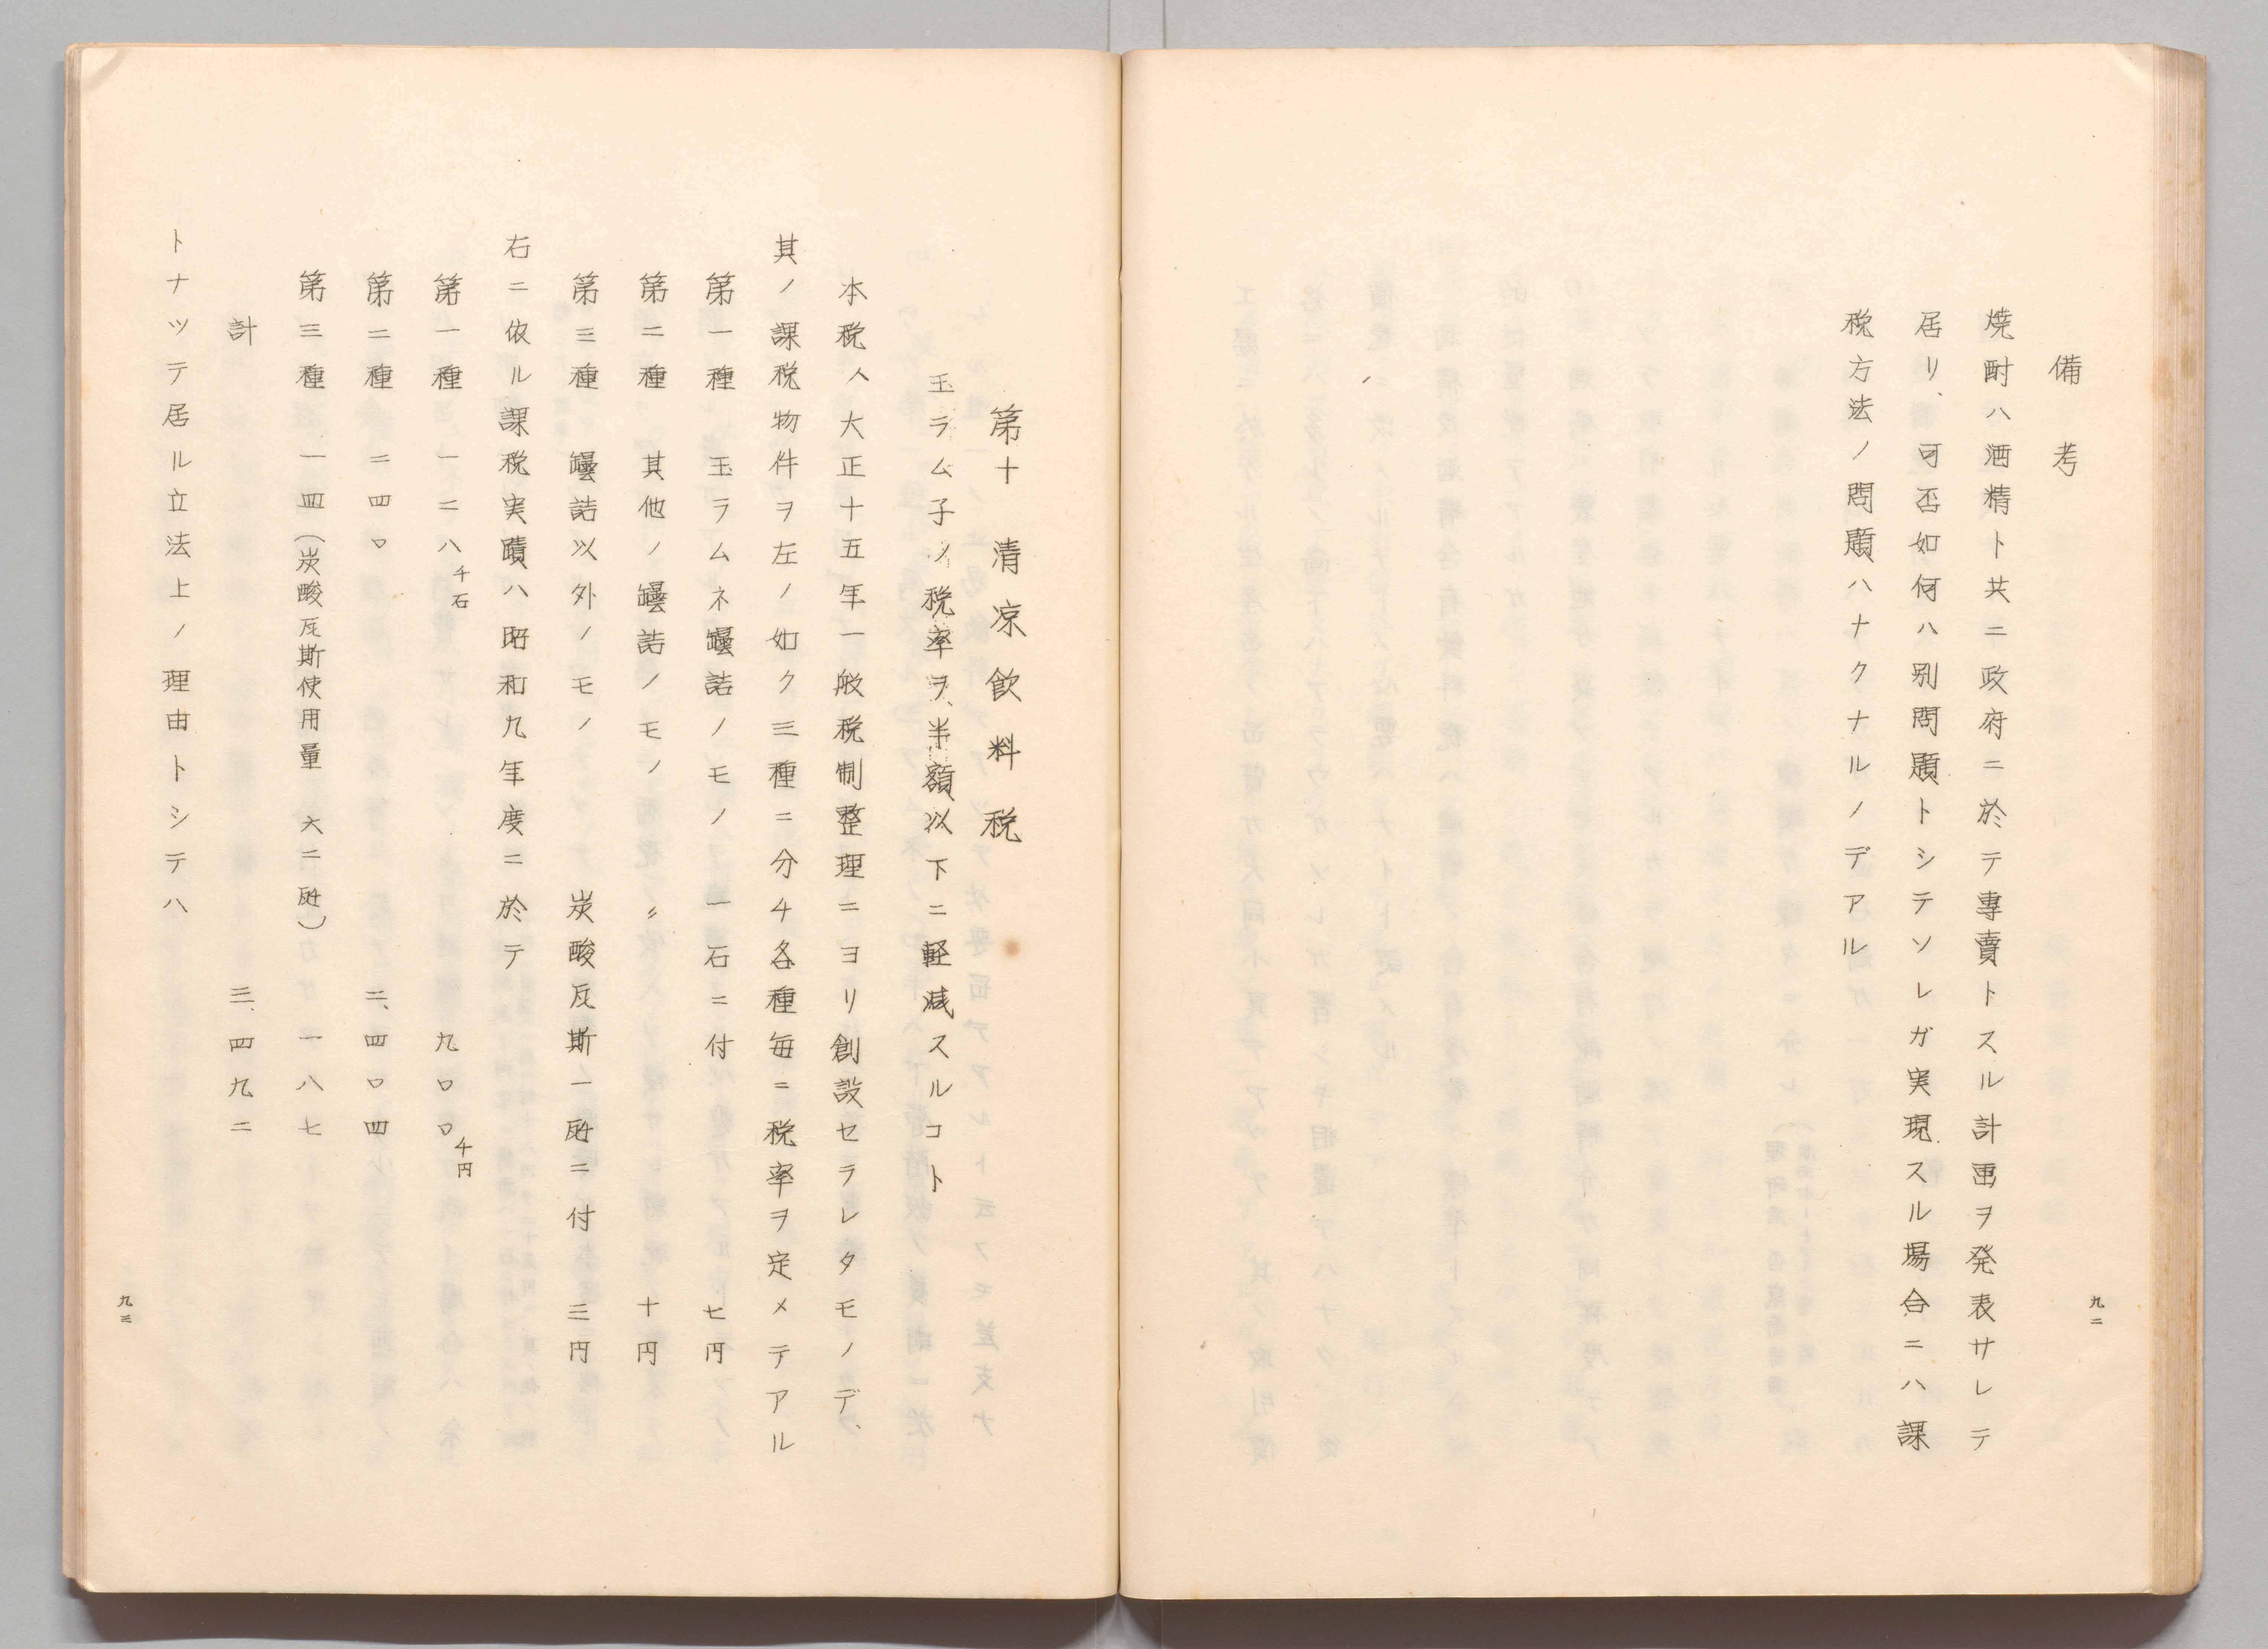 備考
焼酎ハ酒精ト共ニ政府ニ於テ專賣トスル計画ヲ発表サレテ
居リ、可否如何ハ別問題トシテソレガ実現スル場合ニハ課
税方法ノ問題ハナクナルノデアル
九二
第十 清凉飲料税
玉ラムネノ税率ヲ半額以下ニ軽減スルコト
本税ハ大正十五年一般税制整理ニヨリ創設セラレタモノデ、
其ノ課税物件ヲ左ノ如ク三種ニ分チ各種毎ニ税率ヲ定メテアル
第一種 玉ラムネ罎詰ノモノ 一石ニ付 七円
第二種 其他ノ罎詰ノモノ 〃 十円
第三種 罎詰以外ノモノ 炭酸瓦斯一瓩ニ付 三円
右ニ依ル課税実蹟ハ昭和九年度ニ於テ
第一種 一二八千石 九〇〇千円
第二種 二四〇 二、四〇四
第三種 一四(炭酸瓦斯使用量 六二瓩) 一八七
計 三、四九二
トナツテ居ル立法上ノ理由トシテハ
九三